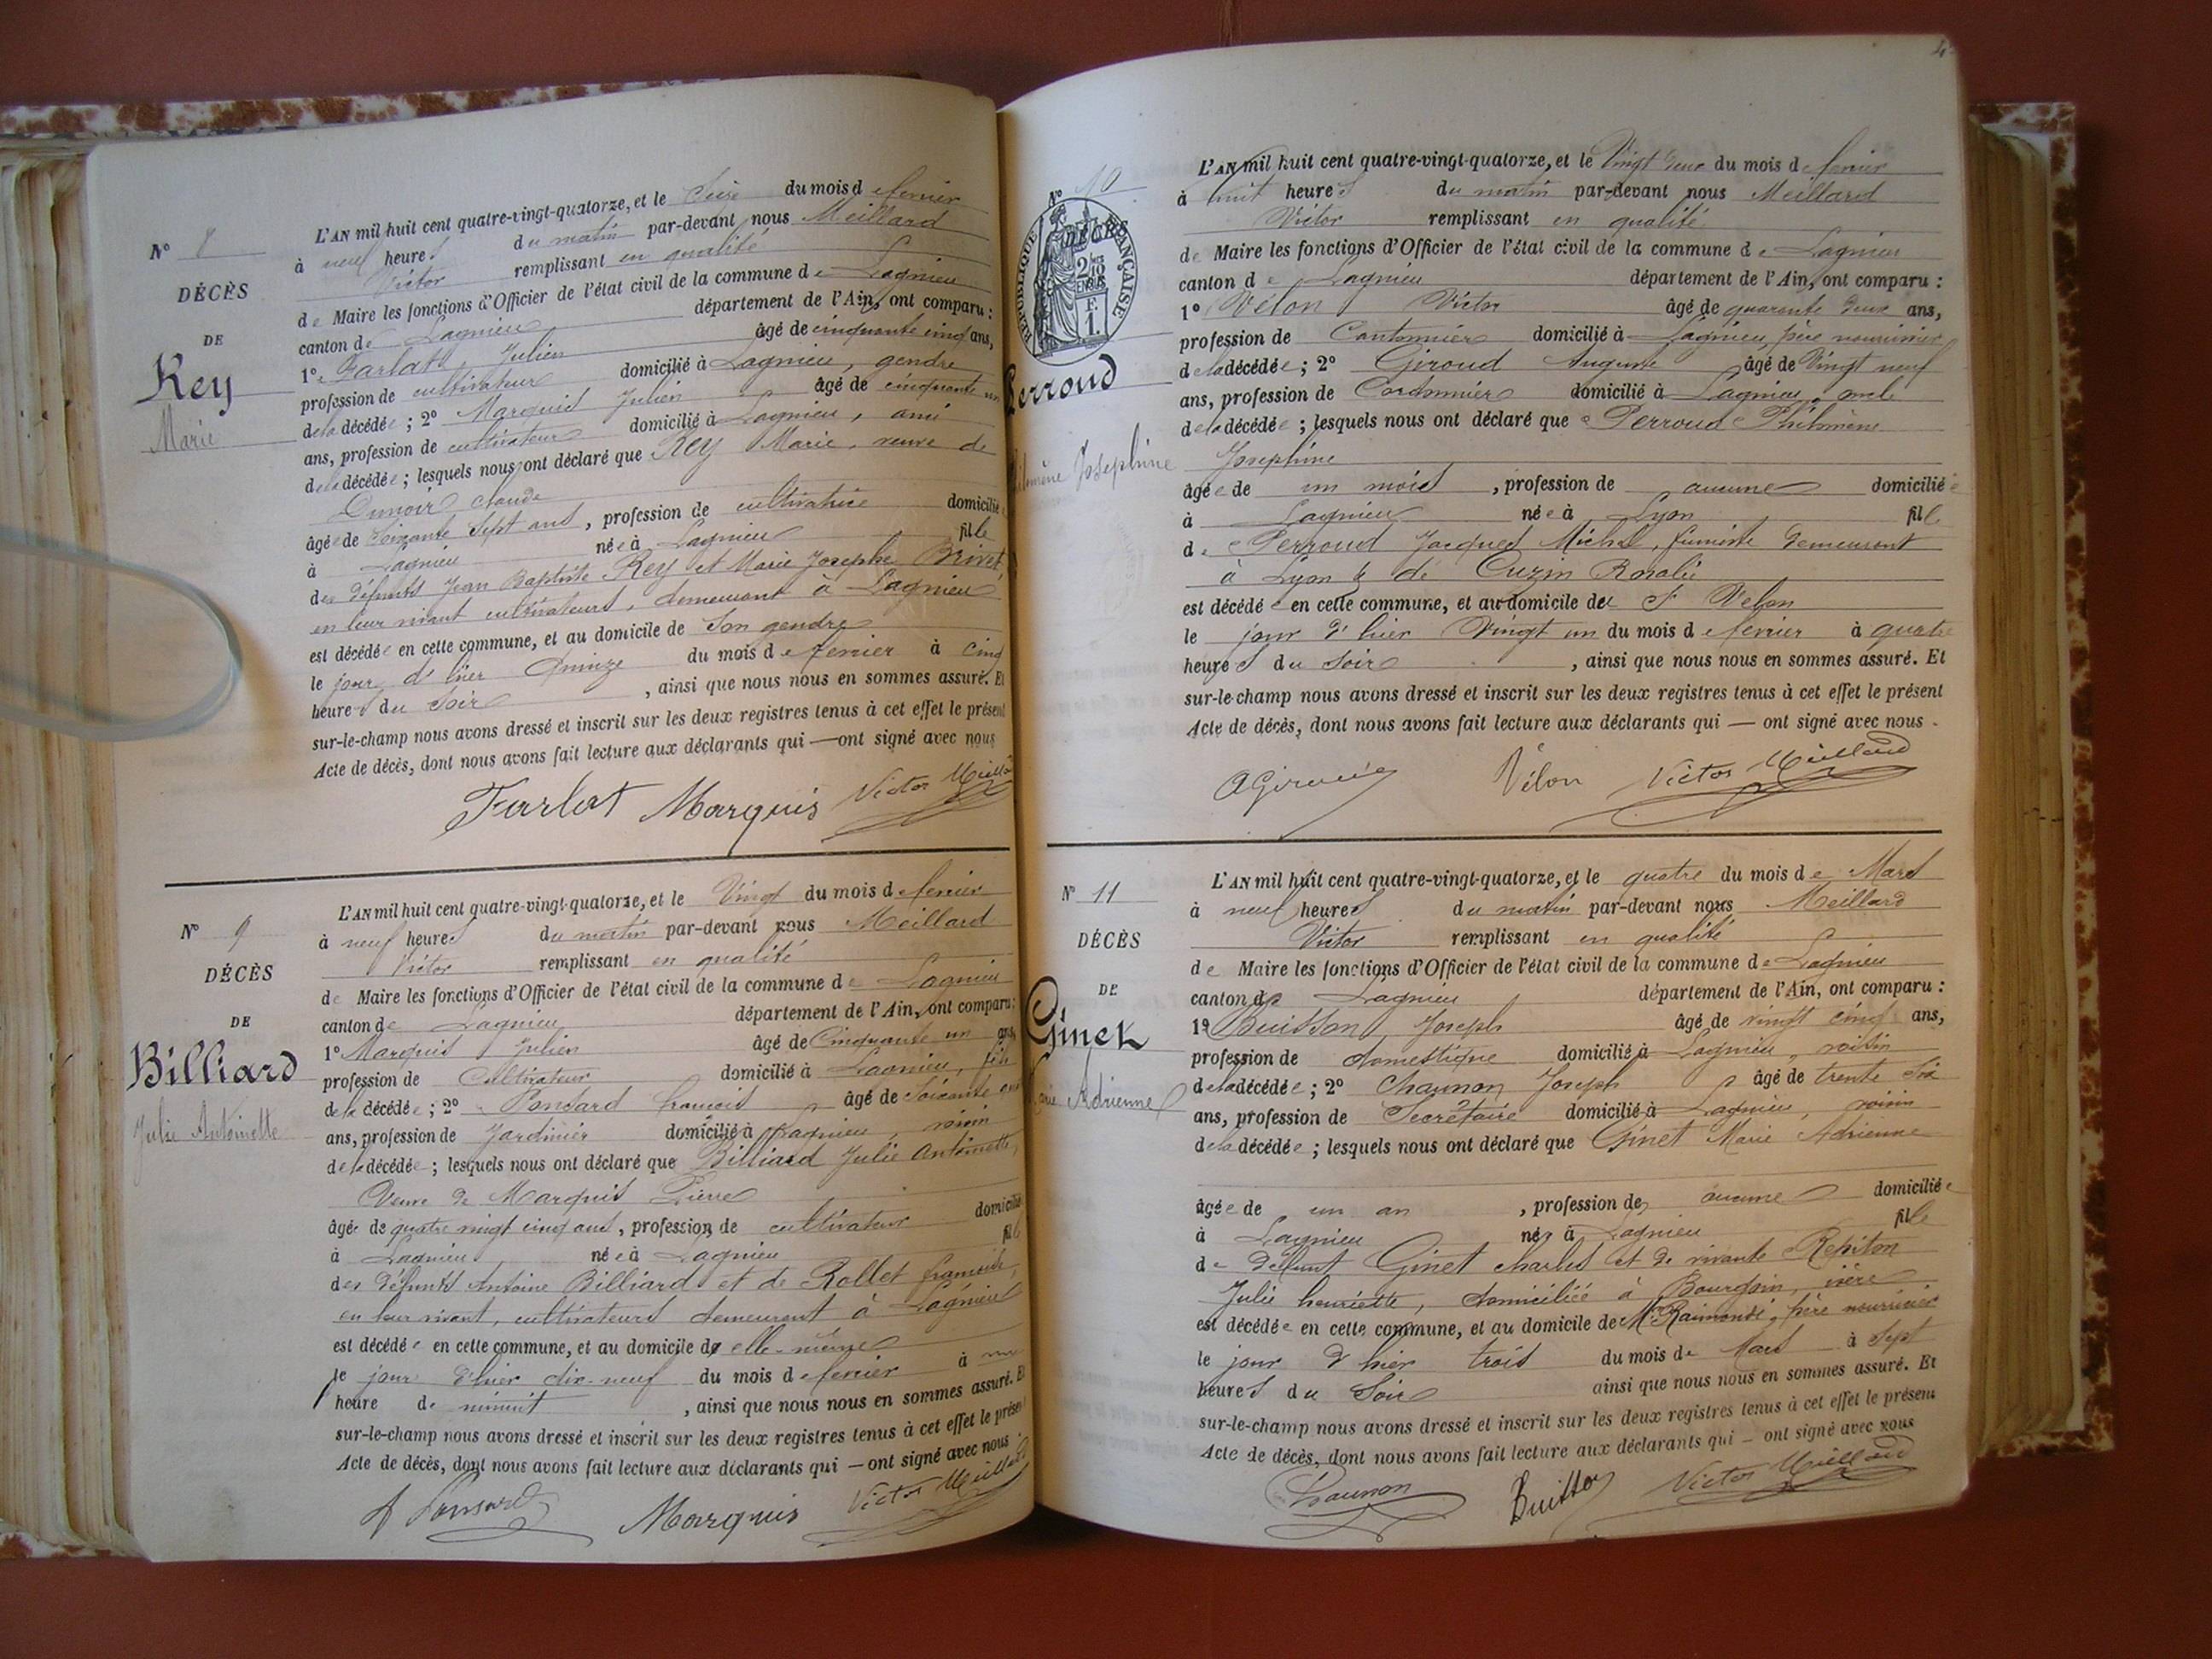 N° 8
DÉCÈS
DE
Rey
Marie
L'AN mil huit cent quatre-vingt-quatorze, et le Seize du mois de fevrier
à neuf heures du matin par-devant nous Meillard
Victor remplissant en qualité
de Maire les fonctions d'Officier de l'état civil de la commune de Lagnieu
canton de Lagnieu département de l'Ain, ont comparu :
1° Farlat Julien âgé de cinquante cinq ans,
profession de cultivateur domicilié à Lagnieu, gendre
de la décédée ; 2° Marquis Julien âgé de cinquante un
ans, profession de cultivateur domicilié à Lagnieu, ami
de la décédée ; lesquels nous ont déclaré que Rey Marie, veuve de
Dunoir Claude
âgée de Soixante Sept ans, profession de cultivatrice domicilié
à Lagnieu née à Lagnieu fille
des défunts Jean Baptiste Rey et Marie Josephe Brivet,
en leur vivant cultivateurs, demeurant à Lagnieu
est décédée en cette commune, et au domicile de Son gendre
le jour d'hier Quinze du mois de fevrier à cinq
heures du Soir, ainsi que nous nous en sommes assuré. Et
sur-le-champ nous avons dressé et inscrit sur les deux registres tenus à cet effet le présent
Acte de décès, dont nous avons fait lecture aux déclarants qui — ont signé avec nous
Farlat Marquis Victor Meillard
N° 9
DÉCÈS
DE
Billiard
Julie Antoinette
L'AN mil huit cent quatre-vingt-quatorze, et le Vingt du mois de fevrier
à neuf heures du matin par-devant nous Meillard
Victor remplissant en qualité
de Maire les fonctions d'Officier de l'état civil de la commune de Lagnieu
canton de Lagnieu département de l'Ain, ont comparu :
1° Marquis Julien âgé de Cinquante un ans,
profession de Cultivateur domicilié à Lagnieu, fils
de la décédée ; 2° Ponsard francois âgé de Soixante
ans, profession de Jardinier domicilié à Lagnieu, voisin
de la décédée ; lesquels nous ont déclaré que Billiard Julie Antoinette,
Veuve de Marquis Pierre
âgée de quatre vingt cinq ans, profession de cultivateur domicilié
à Lagnieu née à Lagnieu fille
des défunts Antoine Billiard et de Rollet francoise,
en leur vivant, cultivateurs demeurant à Lagnieu
est décédée en cette commune, et au domicile de elle-même
le jour d'hier dix-neuf du mois de fevrier à une
heure de minuit, ainsi que nous nous en sommes assuré. Et
sur-le-champ nous avons dressé et inscrit sur les deux registres tenus à cet effet le présent
Acte de décès, dont nous avons fait lecture aux déclarants qui — ont signé avec nous
Ponsard Marquis Victor Meillard
4
N° 10
RÉPUBLIQUE FRANÇAISE
DÉCÈS
2/10 EN SUS
F. 1.
Perroud
Philomène Josephine
L'AN mil huit cent quatre-vingt-quatorze, et le Vingt deux du mois de fevrier
à huit heures du matin par-devant nous Meillard
Victor remplissant en qualité
de Maire les fonctions d'Officier de l'état civil de la commune de Lagnieu
canton de Lagnieu département de l'Ain, ont comparu :
1° Vélon Victor âgé de quarante deux ans,
profession de Cantonnier domicilié à Lagnieu, père nourricier
de la décédée ; 2° Giroud Auguste âgé de Vingt neuf
ans, profession de Cordonnier domicilié à Lagnieu, oncle
de la décédée ; lesquels nous ont déclaré que Perroud Philomène
Josephine
âgée de un mois, profession de aucune domiciliée
à Lagnieu née à Lyon fille
de Perroud Jacques Michel, fumiste demeurant
à Lyon & de Cuzin Rosalie
est décédée en cette commune, et au domicile de S. Velon
le jour d'hier Vingt un du mois de fevrier à quatre
heures du Soir, ainsi que nous nous en sommes assuré. Et
sur-le-champ nous avons dressé et inscrit sur les deux registres tenus à cet effet le présent
Acte de décès, dont nous avons fait lecture aux déclarants qui — ont signé avec nous.
A Giroud Vélon Victor Meillard
N° 11
DÉCÈS
DE
Ginet
Marie Adrienne
L'AN mil huit cent quatre-vingt-quatorze, et le quatre du mois de Mars
à neuf heures du matin par-devant nous Meillard
Victor remplissant en qualité
de Maire les fonctions d'Officier de l'état civil de la commune de Lagnieu
canton de Lagnieu département de l'Ain, ont comparu :
1° Buisson Joseph âgé de vingt cinq ans,
profession de domestique domicilié à Lagnieu, voisin
de la décédée ; 2° Chaunon Joseph âgé de trente six
ans, profession de Secrétaire domicilié à Lagnieu, voisin
de la décédée ; lesquels nous ont déclaré que Ginet Marie Adrienne
âgée de un an, profession de aucune domiciliée
à Lagnieu née à Lagnieu fille
de défunt Ginet charles et de vivante Repiton
Julie henriette, domiciliée à Bourgoin, isère
est décédée en cette commune, et au domicile de Mr Raimondi, père nourricier
le jour d'hier trois du mois de Mars à Sept
heures du Soir ainsi que nous nous en sommes assuré. Et
sur-le-champ nous avons dressé et inscrit sur les deux registres tenus à cet effet le présent
Acte de décès, dont nous avons fait lecture aux déclarants qui — ont signé avec nous
Chaunon Buisson Victor Meillard